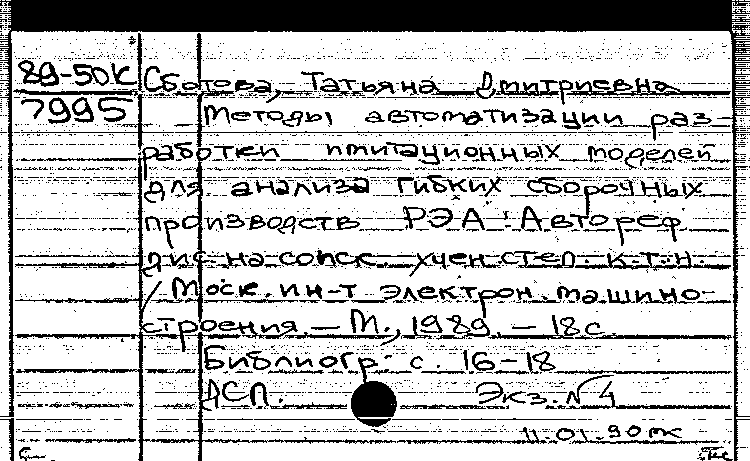 89-50К
7995
Сботева, Татьяна Дмитриевна
Методы автоматизации раз-
работки имитационных моделей
для анализа гибких сборочных
производств РЭА: Автореф
дис. на соиск. учен степ. к.т.н.
/ Моск. ин-т электрон. машино-
строения. — М., 1989. — 18 с.
Библиогр: с. 16-18
ДСП. Экз. №4
11.01.90